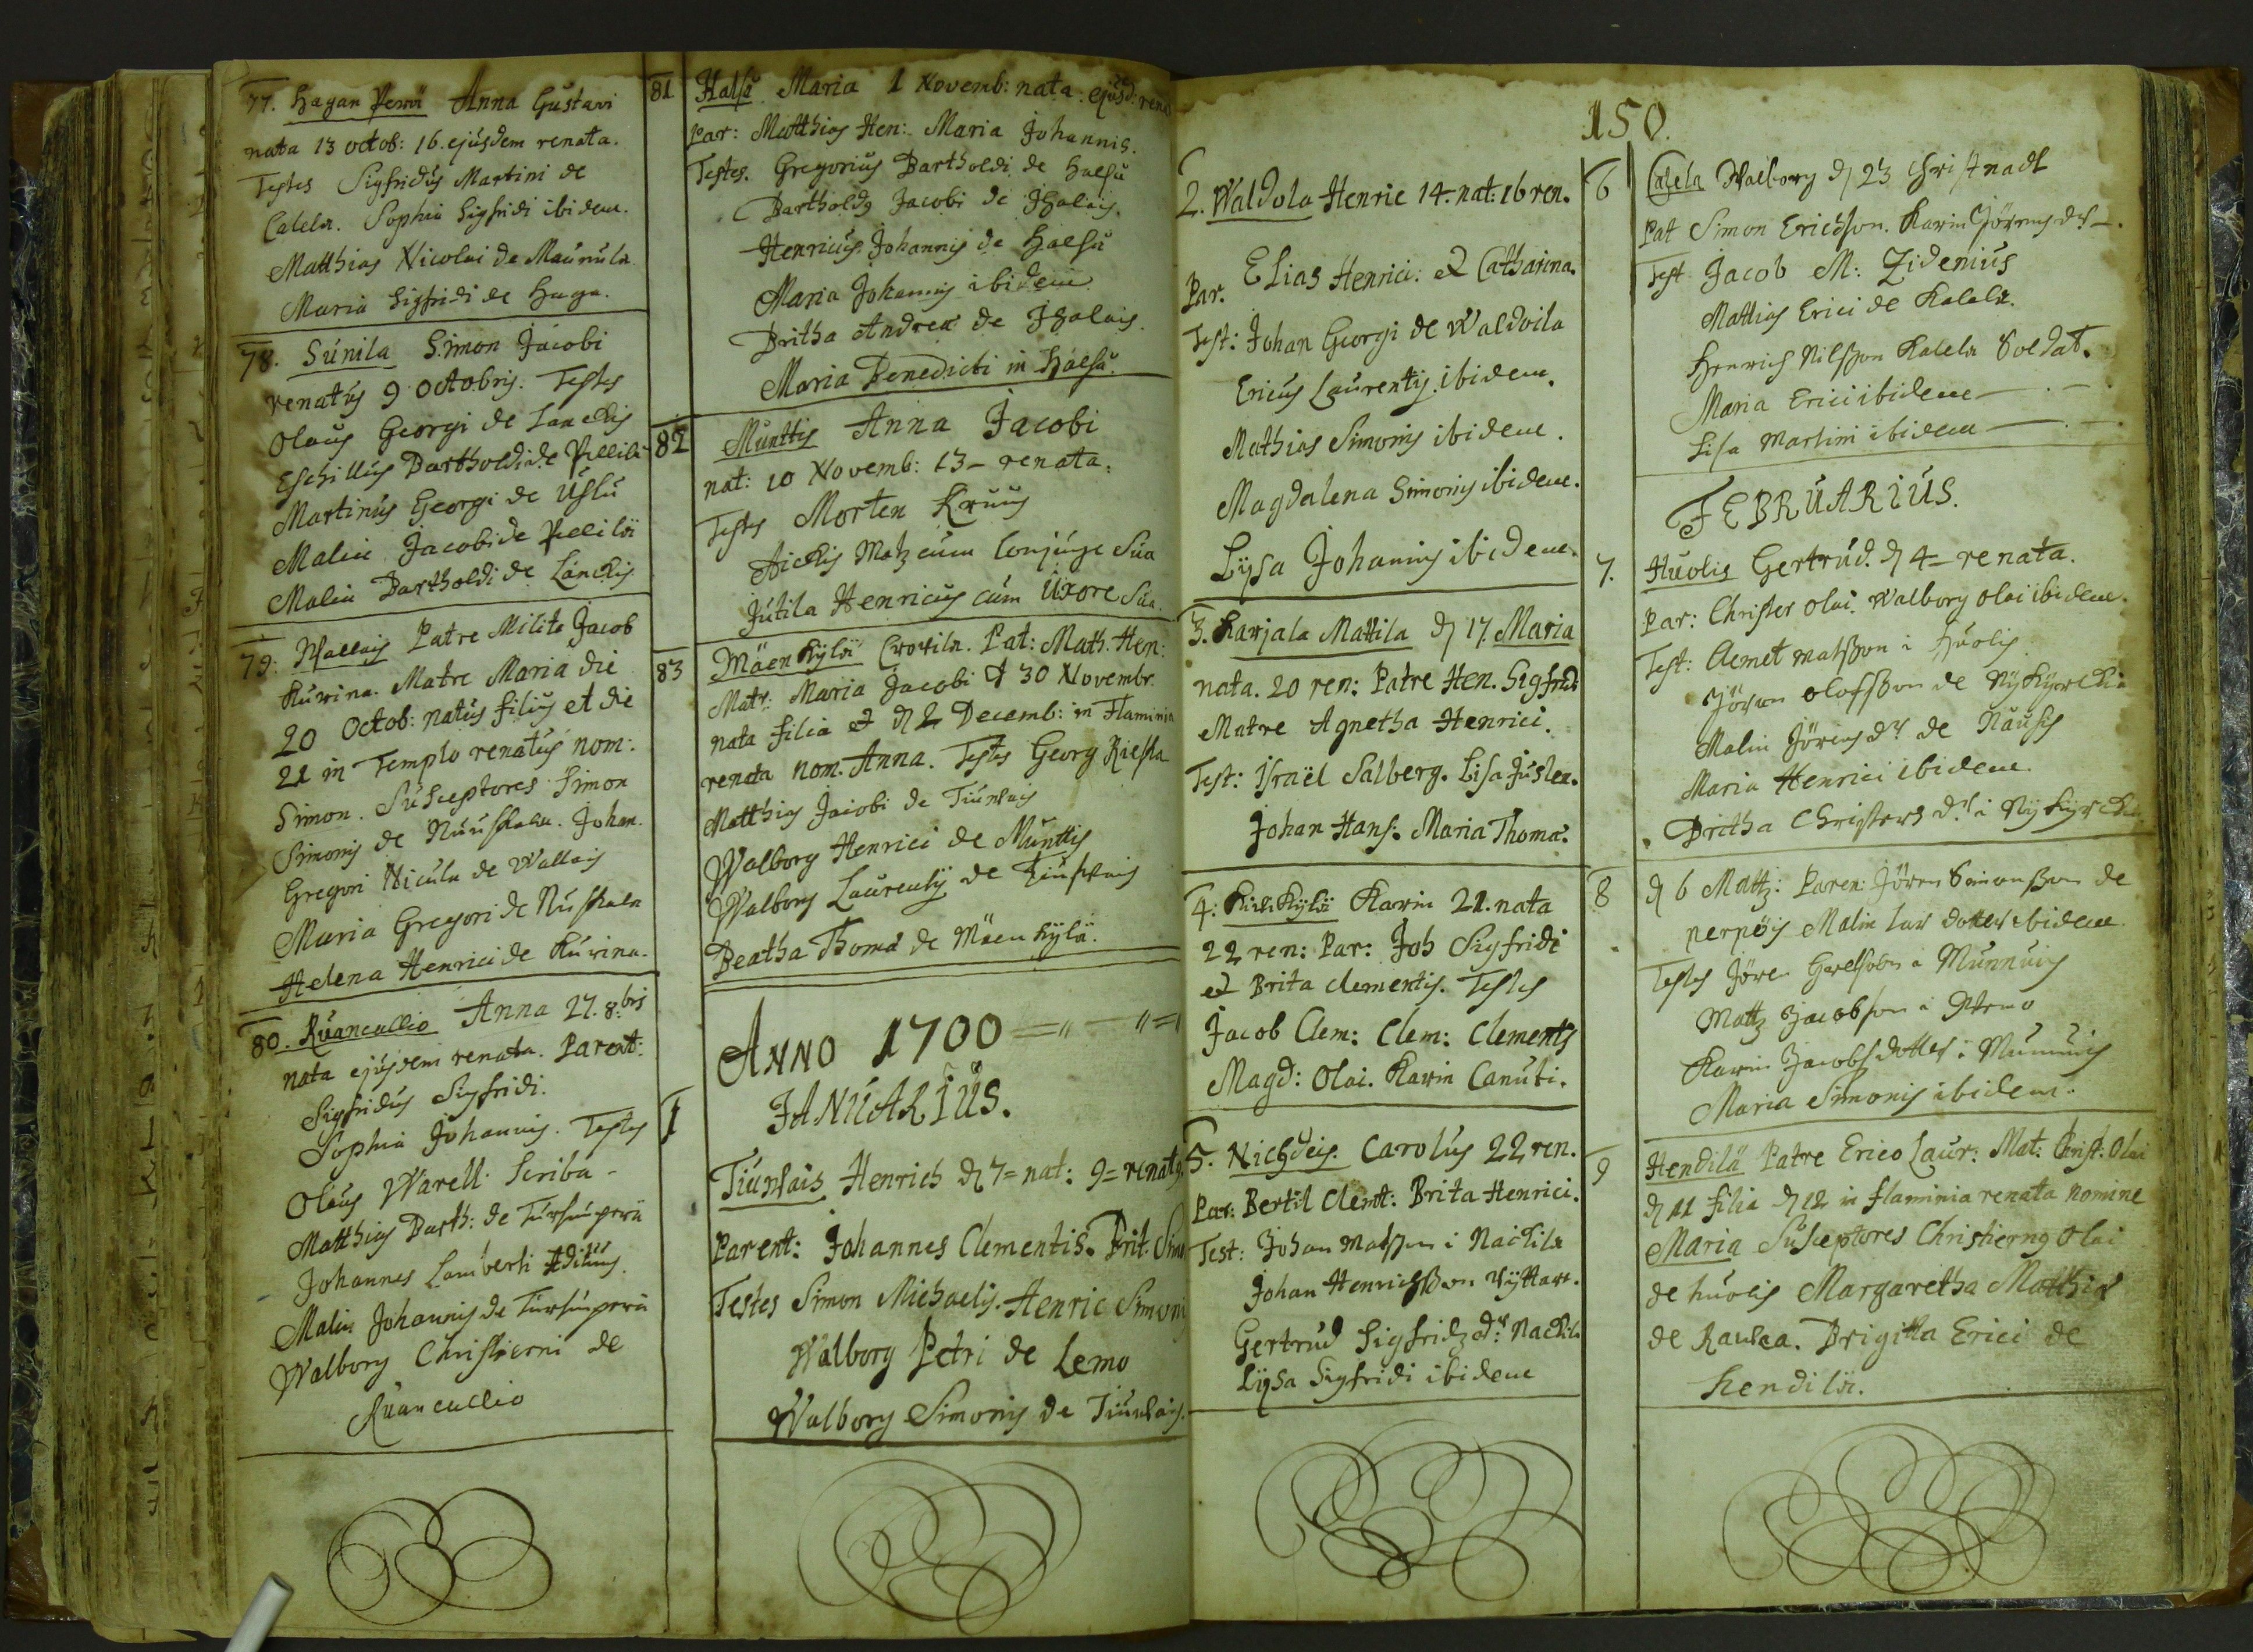 77. Hagan Perœ Anna Gustavi
nata 13 octob: 16. ejusdem renata.
Testes Sigfridus Martini de
Calela. Sophia Sigfridi ibidem.
Matthias Nicolai de Maunula
Maria Sigfridi de Haga.
78. Sunila Simon Jacobi
renatus 9 octobris. Testes
Olaus Georgi de Lanckis
Eschillus Bartholdi de Pillilä
Martinus Georgi de Uslu
Malin Jacobi de Pillilä
Malin Bartholdi de Lanckis
79. Wallais Patre Milite Jacob
Kurina. Matre Maria die
20 Octob: natus filius et die
21 in Templo renatus nom:
Simon. Susceptores Simon
Simonis de Nuuskala. Johan.
Gregori Nicula de Wallais
Maria Gregori de Nuskala
Helena Henrici de Kurina.
80. Ruancallio Anna 27. 8bris
nata ejusdem renata. Parent:
Sigfridus Sigfridi.
Sophia Johannis. Testes
Olaus Warell. Scriba
Matthias Barth: de Tursunperä
Johannes Lamberti Ædituus.
Malin Johannis de Tursunperä
Walborg Christierni de
Ruancallio
81 Halsu Maria 1 Novemb: nata. ejusd: rena
Par: Matthias Hen: Maria Johannis.
Testes. Gregorius Bartholdi de Halsu
Bartholdg Jacobi de Ihalais.
Henricus Johannis de Halsu
Maria Johannis ibidem
Britha Andreæ de Ihalais.
Maria Benedicti in Halsu.
82 Munttis Anna Jacobi
nat: 10 Novemb: 13 - renata.
Testes Morten Kruus
Aickis Matz cum Conjuge Sua
Jutila Henricus cum Uxore Sua.
83 Mäenkylä Pat: Math. Hen:
Matr: Maria Jacobi d 30 Novembr.
nata filia et d 2 Decemb: in Flaminia
renata nom. Anna. Testes Georg Kiesla
Matthias Jacobi de Tiunlais
Walborg Henrici de Munttis
Walborg Laurentij de
Beatha Thomæ de Mäenkylä.
ANNO 1700
JANUARIUS.
1 Tiunlais Henrich d 7 = nat: 9 = renatg.
Parent: Johannes Clementis. Brit. Simo
Testes Simon Michaelis. Henric Simoni
Walborg Petri de Lemo
Walborg Simonis de Tiunlais.
150.
2. Waldola Henric 14. nat: 16 ren.
Par. Elias Henrici: et Catharina.
Test: Johan Georgi de Waldoila
Ericus Laurentij. ibidem.
Mathias Simonis ibidem.
Magdalena Simonis ibidem.
Lysa Johannis ibidem.
3. Karjala Mattila d 17. Maria
nata. 20 ren: Patre Hen. Sigfridi
Matre Agnetha Henrici.
Test: Israël Salberg. Lisa Juslen.
Johan Hans: Maria Thomæ.
4. Karin 21. nata
22 ren: Par: Joh Sigfridi
et Brita Clementis. Testes
Jacob Clem: Clem: Clements
Magd: Olai. Karin Canuti.
5. Carolus 22 ren.
Par: Bertil Clemt: Brita Henrici.
Test: Johan Matsson i Nackila
Johan Henrichsson Ryttare.
Gertrud Sigfridz dr. Nackila
Lysa Sigfridi ibidem
6 Calela Walborg d 23 Christnadt
Pat Simon Ericsson. Karin Jörens dr.
Test Jacob M: Zidenius
Mattias Erici de Kalela.
Henrich Nilsson Kalela Soldat.
Maria Erici ibidem
Lisa Martini ibidem
FEBRUARIUS.
7. Huolis Gertrud. d 4 = renata.
Par: Christer Olai. Walborg Olai ibidem.
Test: Clemet Matsson i Huolis
Jören Olofsson de Nykyrckia
Malin Jörens dr de Nausis
Maria Henrici ibidem.
Britha Christers dr. i Nykyrckia
8 d 6 Mattz: Paren: Jören Simonsson de
perpöis Malin Lars dotter ibidem
Testes Jören i Munnuis
Mattz Jacobson i
Karin Jacobsdotter i Munnuis
Maria Simonis ibidem.
9 Hendilä Patre Erico Laur: Mat: Christ: Olai
d 11 filia d 12 in flaminia renata nomine
Maria Susceptores Christierng Olai
de huolis Margaretha Matthiæ
de Raulca. Brigitta Erici de
hendilä.